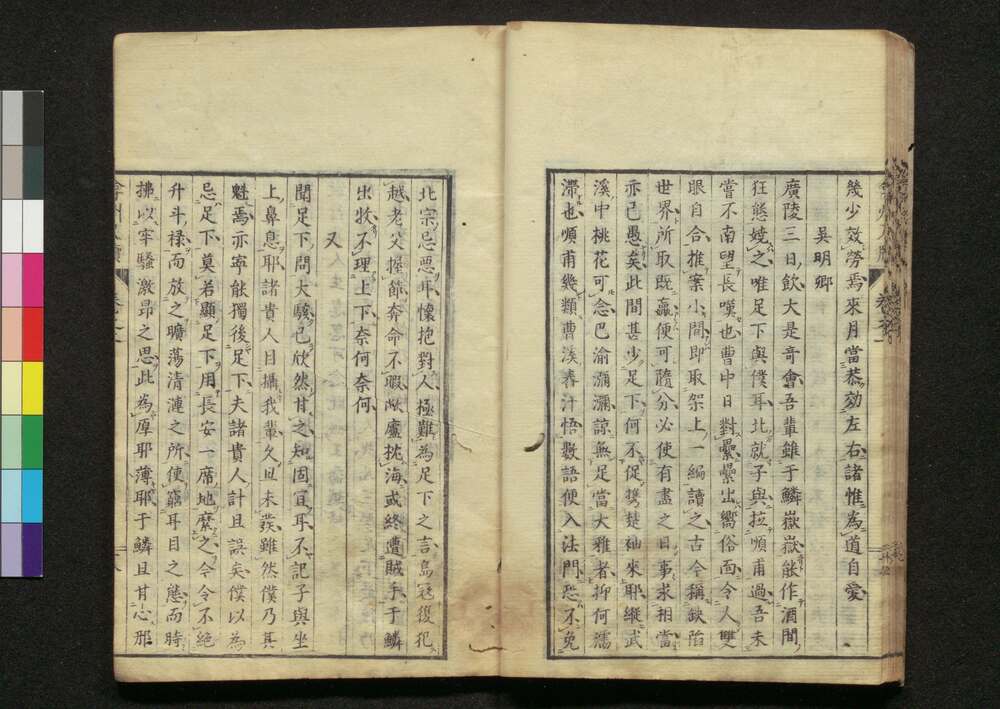 幾少效勞焉來月當恭効左右諸惟為道自愛
吳明卿
廣陵三日飲大是奇會吾輩雖于鱗嶽嶽能作酒間
狂態嬈之唯足下與僕耳北就子與拉順甫過吾未
嘗不南望長嘆也曹中日對纍纍出嚮俗面令人雙
眼自合推案小間即取架上一編讀之古今稱缺陷
世界所取既贏便可隨分必使有盡之日事求相當
亦已愚矣此間甚少足下何不促裝楚釉來耶縱武
溪中桃花可念巴渝瀰瀰諒無足當大雅者抑何濡
滯也順甫幾類曹溪舂汁悟數語便入法門恐不免
北宗忌惡耳懷抱對人極難為足下之言島寇復犯
越老父握節奔命不暇敝廬枕海或終遭賊手于鱗
出牧不理上下奈何奈何
又
聞足下問大駭已欣然甘之知固宜耳不記子與坐
上鼻息耶諸貴人目攝我輩久且未發雖然僕乃其
魁焉亦寧能獨後足下夫諸貴人計且誤矣僕以為
忌足下莫若顯足下用長安一席地縻之令令不絕
升斗祿而放之曠蕩清漣之所便竄耳目之態而時
拂以牢騷激昂之思此為厚耶薄耶于鱗且甘心邢